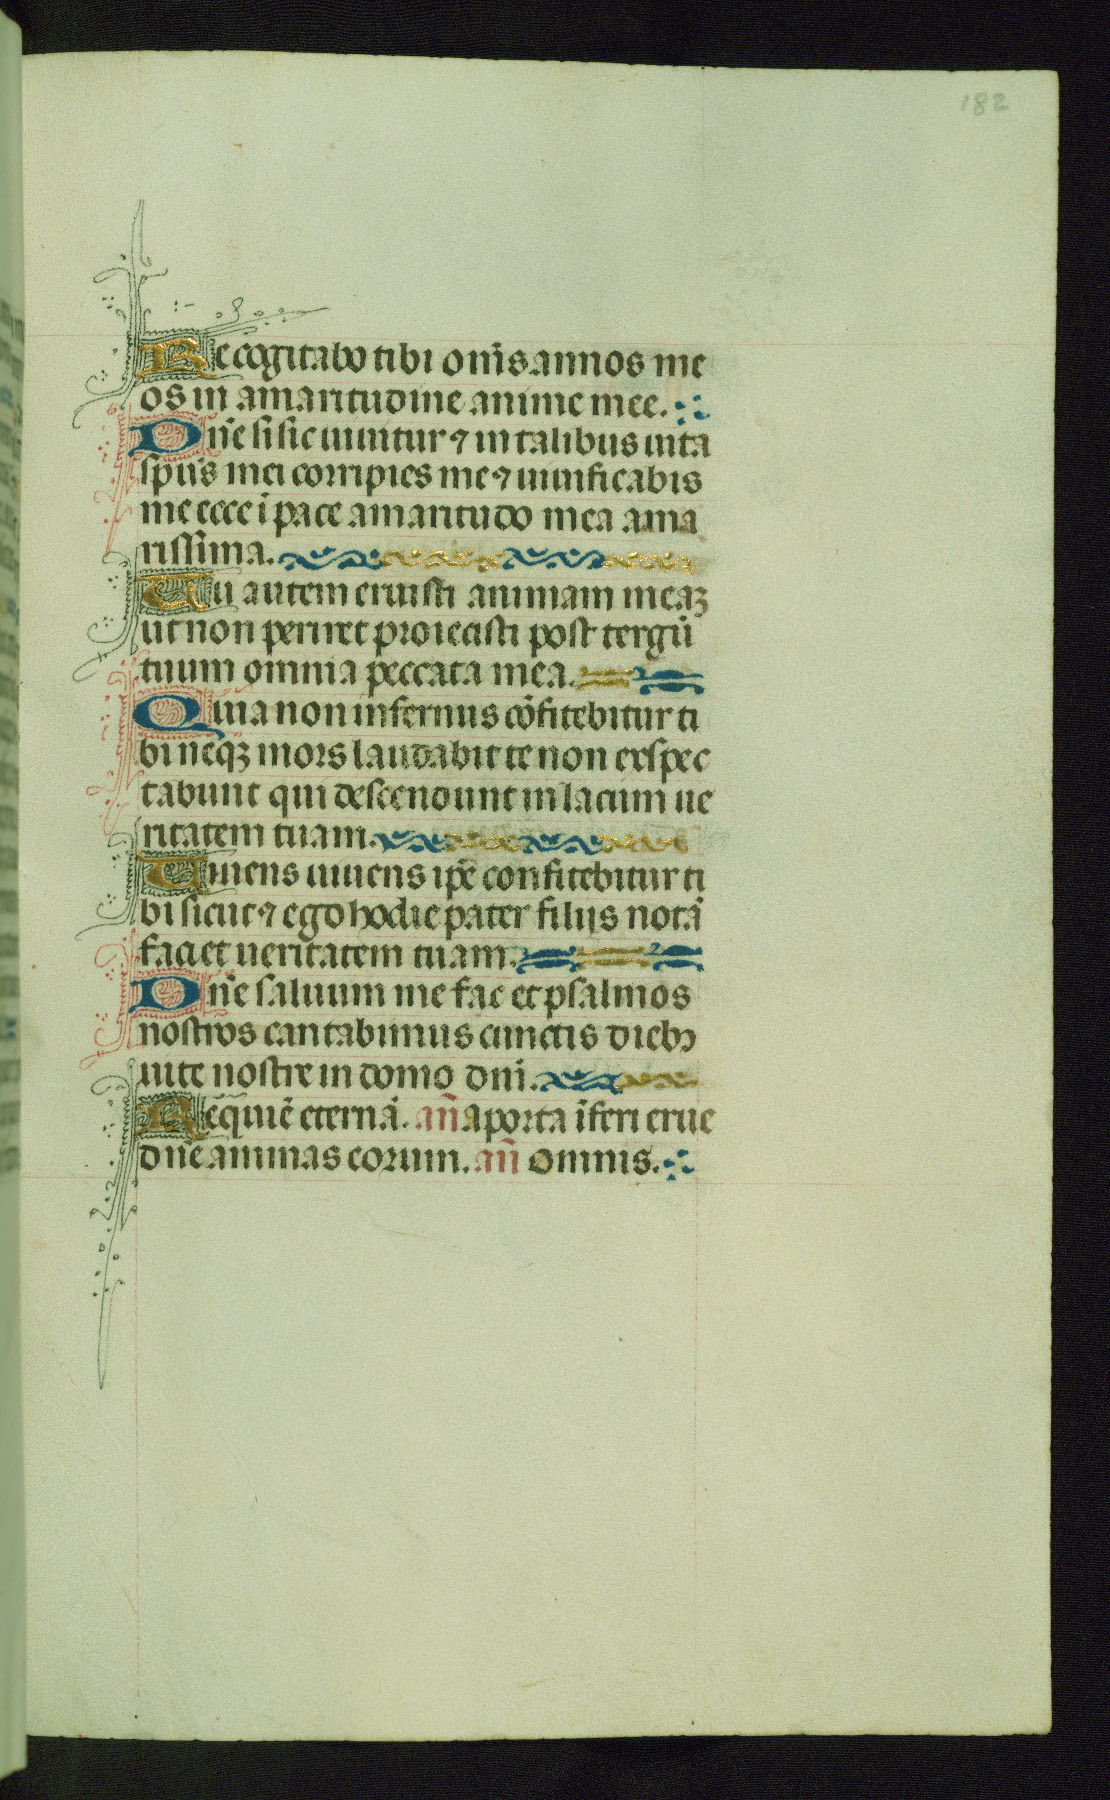 182
Recogitabo tibi om̄s annos me
os in amaritudine anime mee.
Dn̄e si sic uiuitur ⁊ in talibus uita
sp̄us mei corripies me ⁊ uiuificabis
me ecce ī pace amaritudo mea ama
rissima.
Tu autem eruisti animam meaꝫ
ut non periret proiecisti post tergū
tuum omnia peccata mea.
Quia non infernus cōfitebitur ti
bi neqꝫ mors laudabit te non exspec
tabunt qui descendunt in lacum ue
ritatem tuam.
Viuens uiuens ip̄e confitebitur ti
bi sicut ⁊ ego hodie pater filijs notā
faciet ueritatem tuam.
Dn̄e saluum me fac et psalmos
nostros cantabimus cunctis diebꝫ
uite nostre in domo dn̄i.
Requiē eternā. an̄ a porta īferi erue
dn̄e animas eorum. an̄ Omnis.